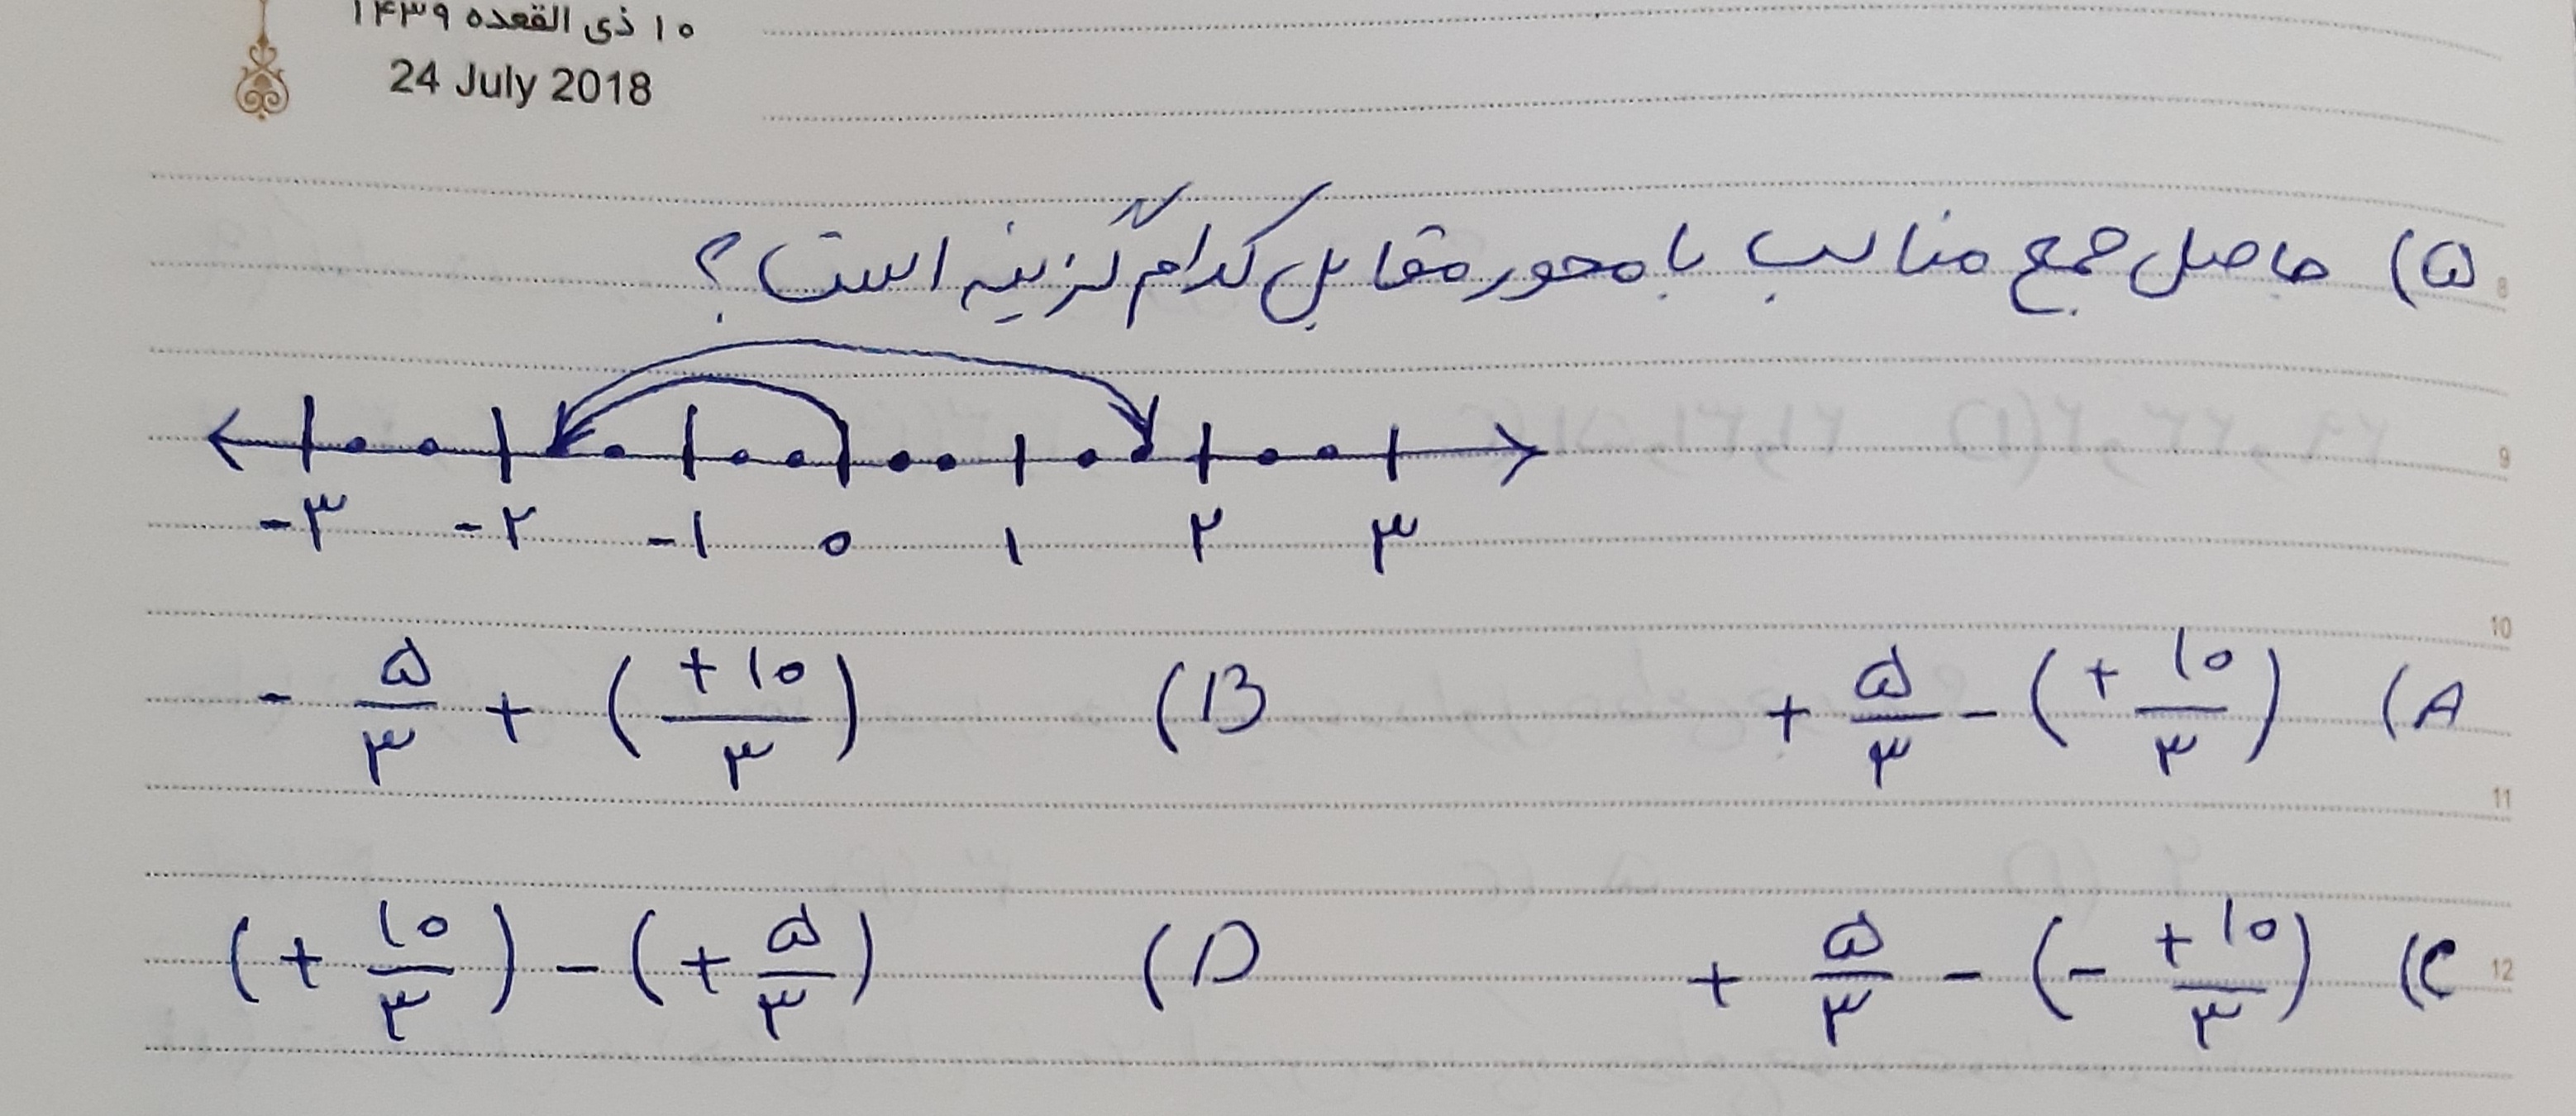 ۱۰ ذی القعده ۱۴۳۹
24 July 2018
۵) حاصل جمع مناسب با محور مقابل کدام گزینه است؟
8
9
-۳ -۲ -۱ ۰ ۱ ۲ ۳
10
A) + ۵/۳ - (+ ۱۰/۳) B) - ۵/۳ + (+۱۰/۳)
11
C) + ۵/۳ - (- +۱۰/۳) D) (+ ۱۰/۳) - (+ ۵/۳)
12